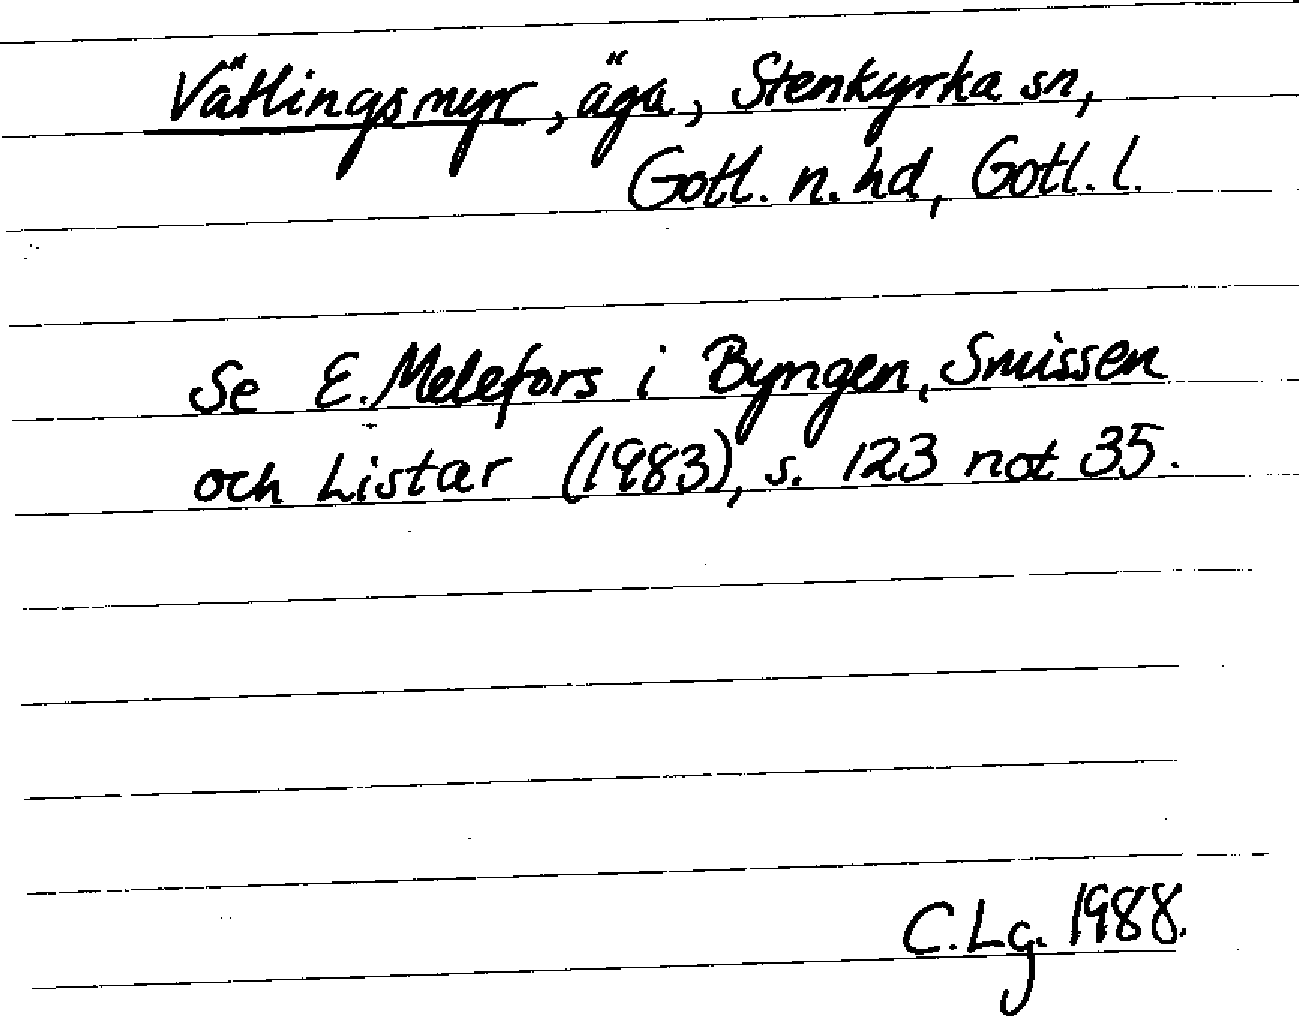 Vätlingsmyr, äga, Stenkyrka sn,
Gotl. n. hd, Gotl. l.
Se E. Melefors i Byngen, Smissen
och Listar (1983), s. 123 not 35.
C. Lg. 1988.